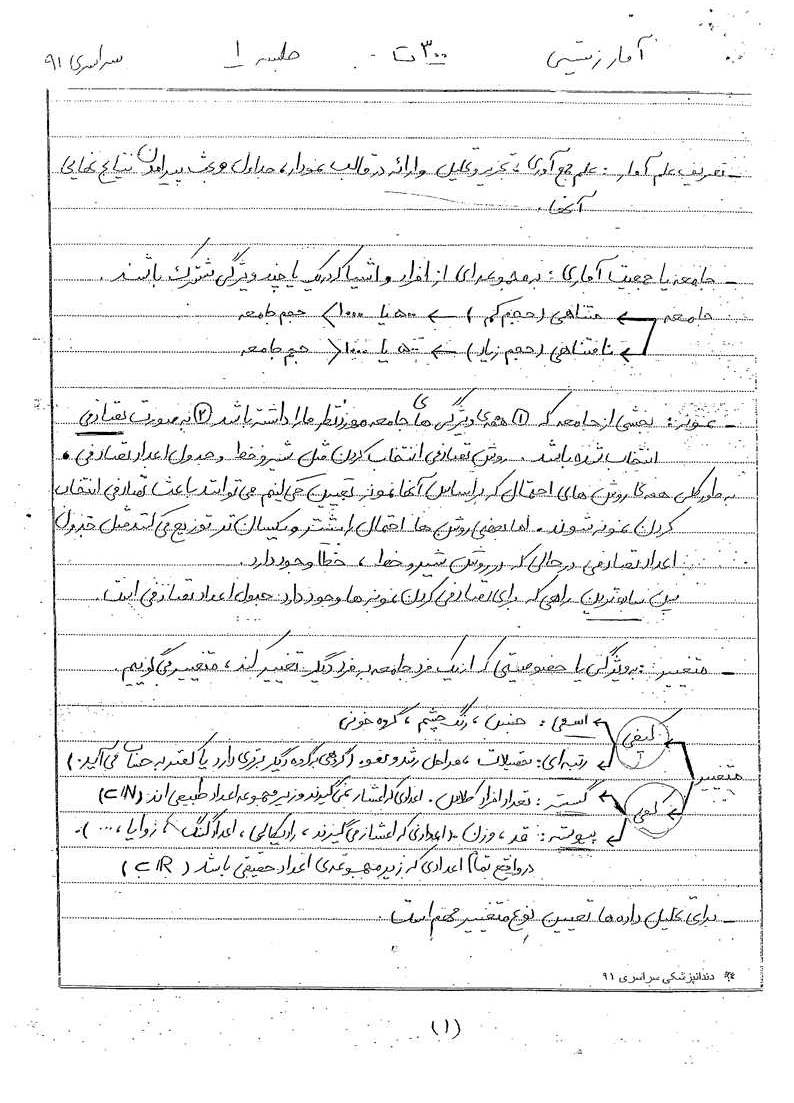 آمار زیستی ۳۰۰ ت جلسه ۱ سراسری ۹۱
ـ تعریف علم آمار : علم جمع آوری، تجزیه و تحلیل و ارائه در قالب نمودار، جداول و بحث پیرامون نتایج نهایی
آنها.
ـ جامعه یا جمعیت آماری : به مجموعه ای از افراد و اشیا که در یک یا چند ویژگی مشترک باشند.
جامعه متناهی (حجم کم) ← ۵۰۰ یا ۱۰۰۰ > حجم جامعه
نامتناهی (حجم زیاد) ← ۵۰۰ یا ۱۰۰۰ < حجم جامعه
ـ نمونه : بخشی از جامعه که ① همه ی ویژگی های جامعه مورد نظر ما را داشته باشد ② به صورت تصادفی
انتخاب شده باشد. روش تصادفی انتخاب کردن مثل شیر و خط و جدول اعداد تصادفی.
به طور کلی همه ی روش های احتمال که بر اساس آنها نمونه تعیین می کنیم می توانند باعث تصادفی انتخاب
کردن نمونه شوند. اما بعضی روش ها احتمال را بیشتر و یکسان تر توزیع می کنند مثل جدول
اعداد تصادفی در حالی که در روش شیر و خط، خطا وجود دارد.
پس ساده ترین راهی که برای تصادفی کردن نمونه ها وجود دارد جدول اعداد تصادفی است.
ـ متغییر : به ویژگی یا خصوصیتی که از یک فرد جامعه به فرد دیگر تغییر کند، متغییر می گوییم.
متغییر کیفی اسمی : جنس، رنگ چشم، گروه خونی
رتبه ای : تحصیلات، مراحل رشد و نمو (گروهی به گروه دیگر برتری دارد یا کمتر به حساب می آید.)
کمی گسسته : تعداد افراد کلاس. اعدادی که اعشار نمی گیرند و زیر مجموعه اعداد طبیعی اند (⊂ℕ)
پیوسته : قد، وزن (اعدادی که اعشار می گیرند، رادیکالی، اعداد گنگ، زوایا، ...).
در واقع تمام اعدادی که زیر مجموعه ی اعداد حقیقی باشد (⊂ℝ)
ـ برای تحلیل داده ها تعیین نوع متغییر مهم است.
دندانپزشکی سراسری ۹۱
(۱)